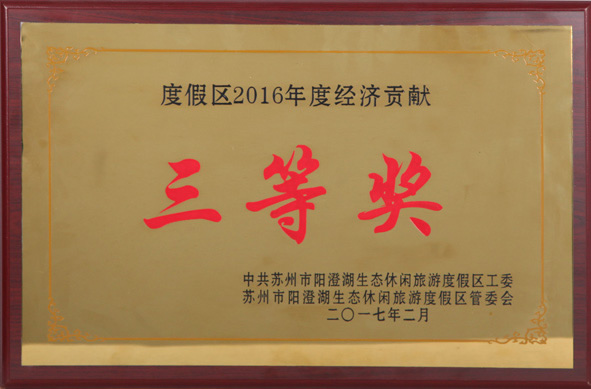 度假区2016年度经济贡献
三等奖
中共苏州市阳澄湖生态休闲旅游度假区工委
苏州市阳澄湖生态休闲旅游度假区管委会
二〇一七年二月